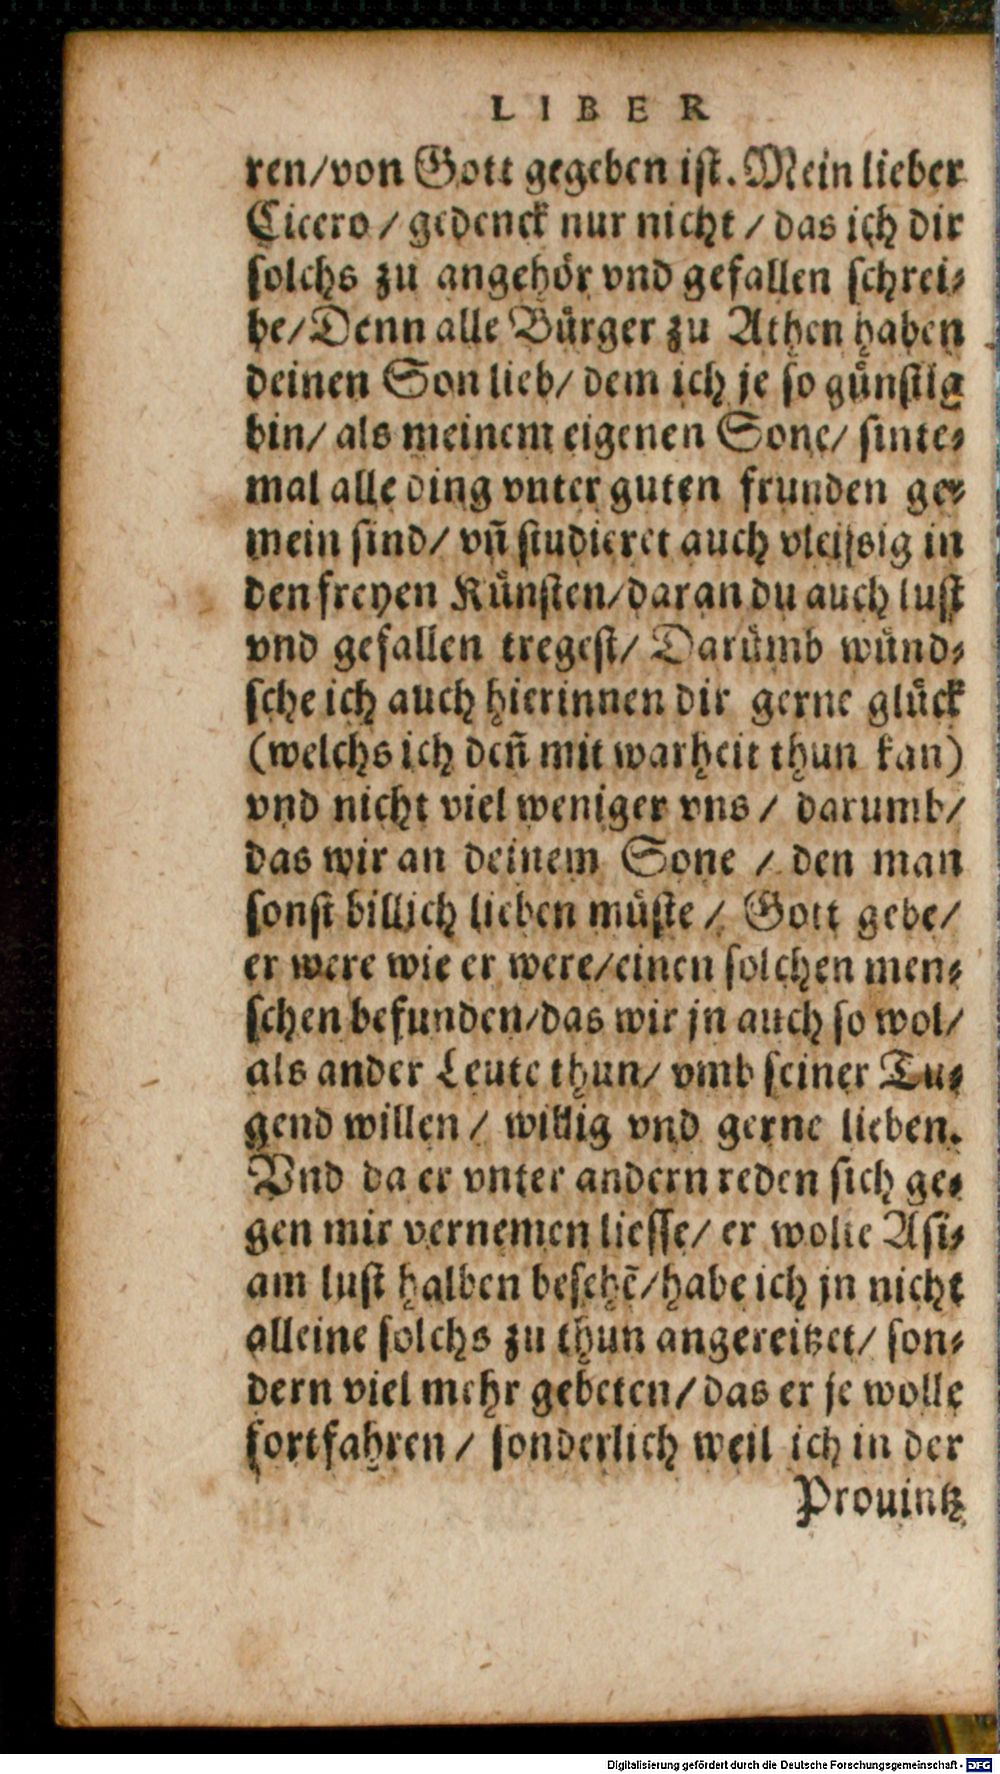 LIBER
ren/von Gott gegeben iſt. Mein lieber
Cicero / gedenck nur nicht / das ich dir
ſolchs zu angehoͤr vnd gefallen ſchrei⸗
be/Denn alle Buͤrger zu Athen haben
deinen Son lieb/ dem ich je ſo guͤnſtig
bin/ als meinem eigenen Sone/ ſinte⸗
mal alle ding vnter guten frunden ge⸗
mein ſind/ vn̄ ſtudieret auch vleiſsig in
den freyen Kuͤnſten/daran du auch luſt
vnd gefallen tregeſt/ Daruͤmb wuͤnd⸗
ſche ich auch hierinnen dir gerne gluͤck
(welchs ich den̄ mit warheit thun kan)
vnd nicht viel weniger vns / darumb/
das wir an deinem Sone / den man
ſonſt billich lieben muͤſte / Gott gebe/
er were wie er were/einen ſolchen men⸗
ſchen befunden/das wir jn auch ſo wol/
als ander Leute thun/ vmb ſeiner Tu⸗
gend willen / willig vnd gerne lieben.
Vnd da er vnter andern reden ſich ge⸗
gen mir vernemen lieſſe/ er wolte Aſi⸗
am luſt halben beſehē/habe ich jn nicht
alleine ſolchs zu thun angereitzet/ ſon⸗
dern viel mehr gebeten/das er je wolle
fortfahren / ſonderlich weil ich in der
Prouintz
Digitalisierung gefördert durch die Deutsche Forschungsgemeinschaft - DFG